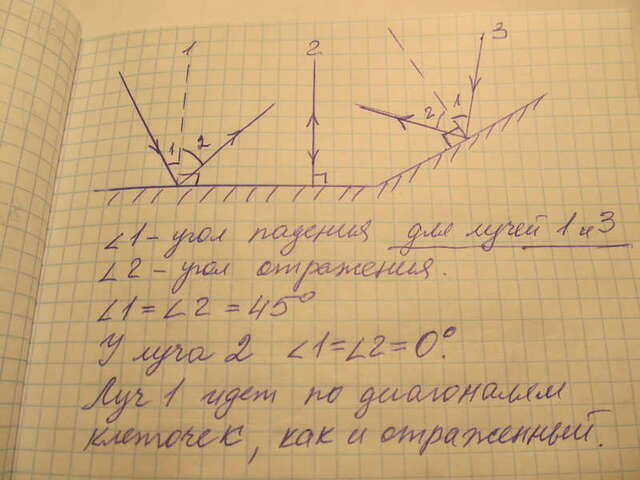 1 2 3
1 2 2 1
∠1 - угол падения для лучей 1 и 3
∠2 - угол отражения.
∠1 = ∠2 = 45°
У луча 2 ∠1=∠2=0°.
Луч 1 идет по диагоналям
клеточек, как и отраженный.